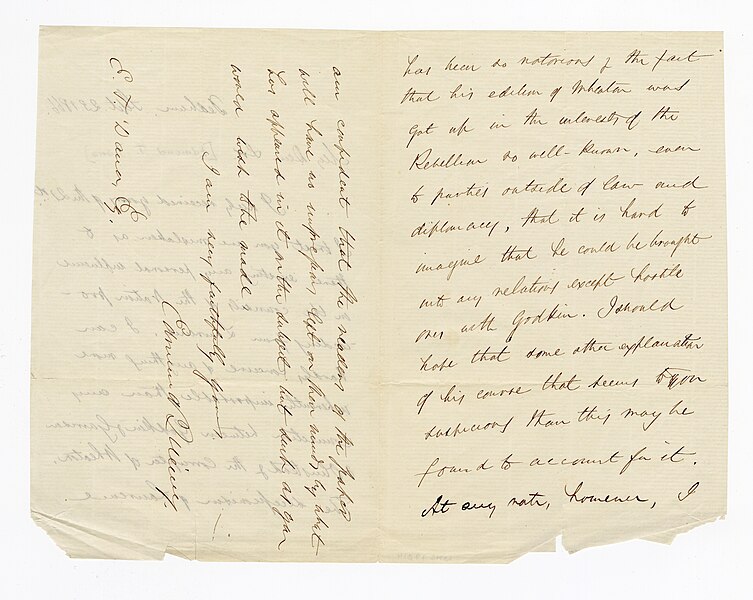 has been so notorious & the fact
that his edition of Wheaton was
got up in the interests of the
Rebellion so well-known, even
to parties outside of law and
diplomacy, that it is hard to
imagine that he could be brought
into any relations except hostile
ones with Godkin. I should
hope that some other explanation
of his course that seems to you
suspicious than this may be
found to account for it.
At any rate, however, I
am confident that the readers of the paper
will have no impression left on their minds by what
has appeared in it on the subject but such as you
would wish to be made
I am very faithfully yours,
Edmund Quincy.